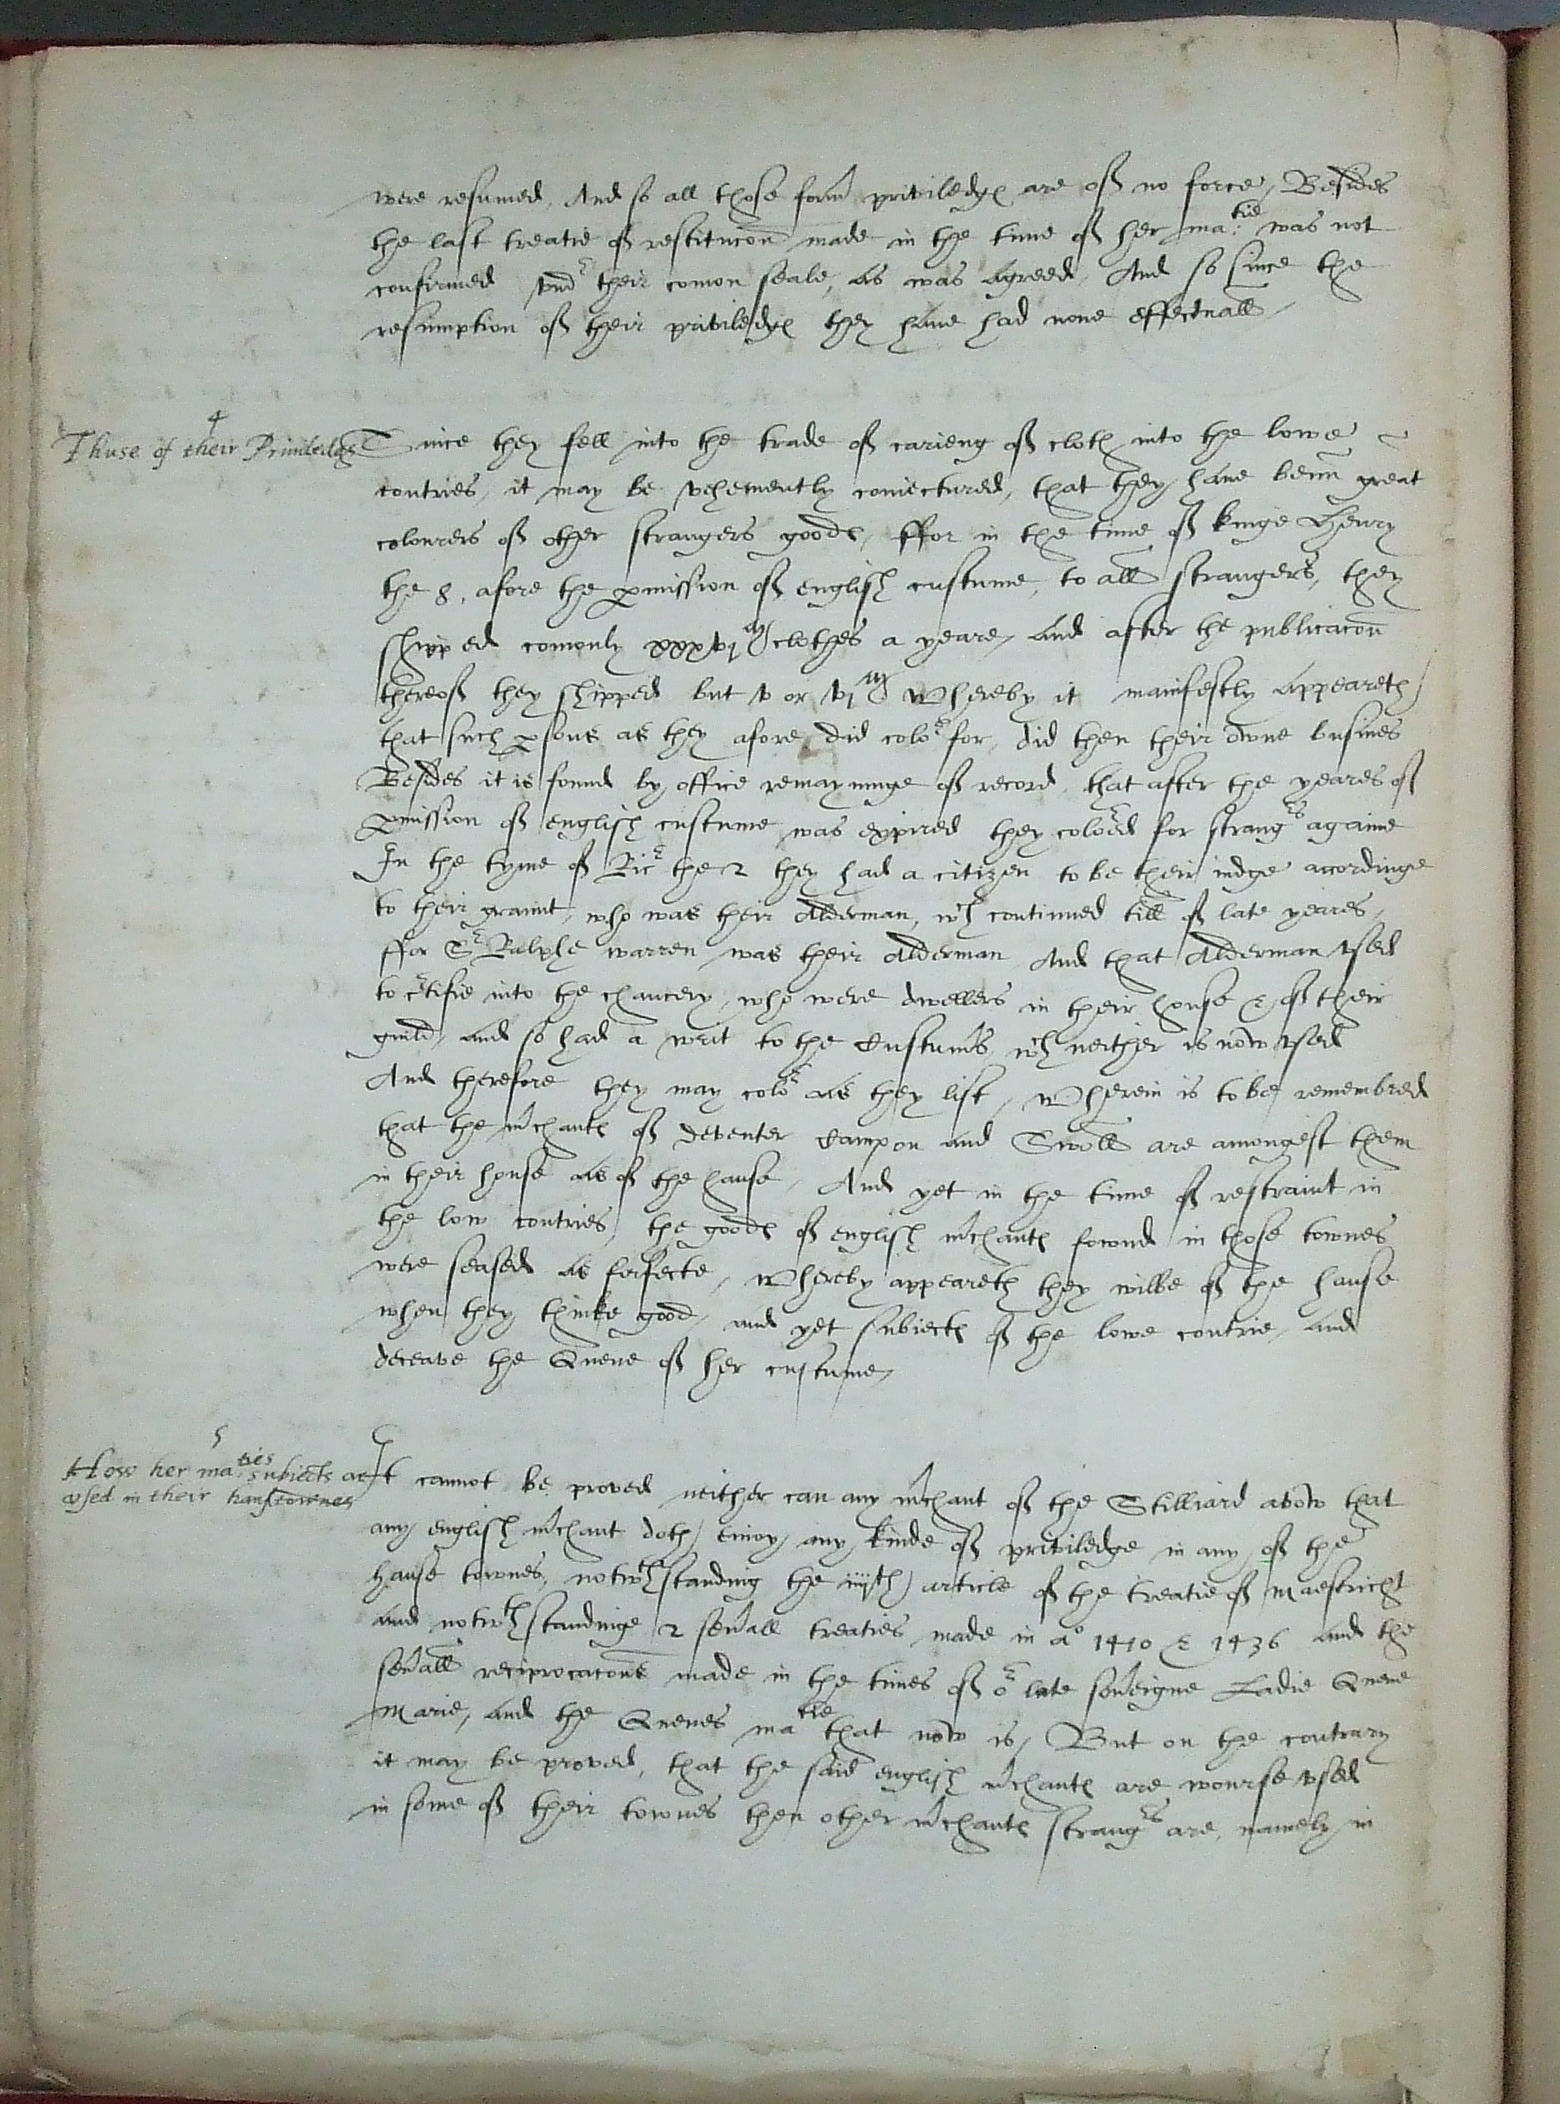 were resumed, And so all those form̃ priviledgꝭ are of no force, Besides
the last treatie of restitucon̄ made in the time of her ma:tie was not
confirmed vndr their comon seale, as was agreed, And so since the
resumption of their priviledgꝭ they haue had none effectuall,
4
Thuse of their Priuiledgꝭ
Since they fell into the trade of carieng of cloth into the lowe
contries, it may be vehemently coniectured, that they haue benn̄ great
colourers of other strangers goodꝭ, ffor in the time of kinge Henry
the 8, afore the ꝑmission of english custume, to all strangers, they
shipped comonly xxxvjM clothes a yeare, and after the publicacon̄
thereof they shipped but v or vjM Whereby it manifestly appeareth
that such ꝑsons as they afore did color for, did then their owne busines
Besides it is found by office remayninge of record, that after the yeares of
ꝑmission of english custume was expired they colored for strangrs againe
In the tyme of Ricr the 2 they had a citizen to be their iudge accordinge
to their graunt, who was their Alderman, wch continued till of late yeares,
ffor Sr Ralphe warren was their Alderman And that Alderman vsed
to certifie into the chancery, who were dwellers in their house & of their
guild, and so had a writ to the Custum̃s wch neither is now vsed
And therefore they may color as they list, Wherein is to be remembred
that the m̃chantꝭ of Deventer Campon and Swoll are amongest them
in their house as of the hanse, And yet in the time of restraint in
the low contries, the goodꝭ of english m̃chantꝭ fownd in those townes
were seased as forfecte, Whereby appeareth they wilbe of the hanse
when they thinke good, and yet subiectꝭ of the lowe contrie, and
deceave the Quene of her custume,
5
How her ma:ties subiects are
vsed in their hanstownes
It cannot be proved neither can any m̃chant of the Stilliard avow that
any english m̃chant doth enioy any kinde of priviledge in any of the
hanse townes, notwthstanding the iiijth article of the treatie of Maestricht
and notwthstandinge 2 sev̄all treaties made in ao 1410 & 1436 and the
sev̄all reciprocacons made in the times of or late sov̄eigne Ladie Quene
Marie, and the Quenes matie that now is, But on the contrary
it may be proved, that the said english m̃chantꝭ are wourse vsed
in some of their townes then other m̃chantꝭ strangrs are, namely in